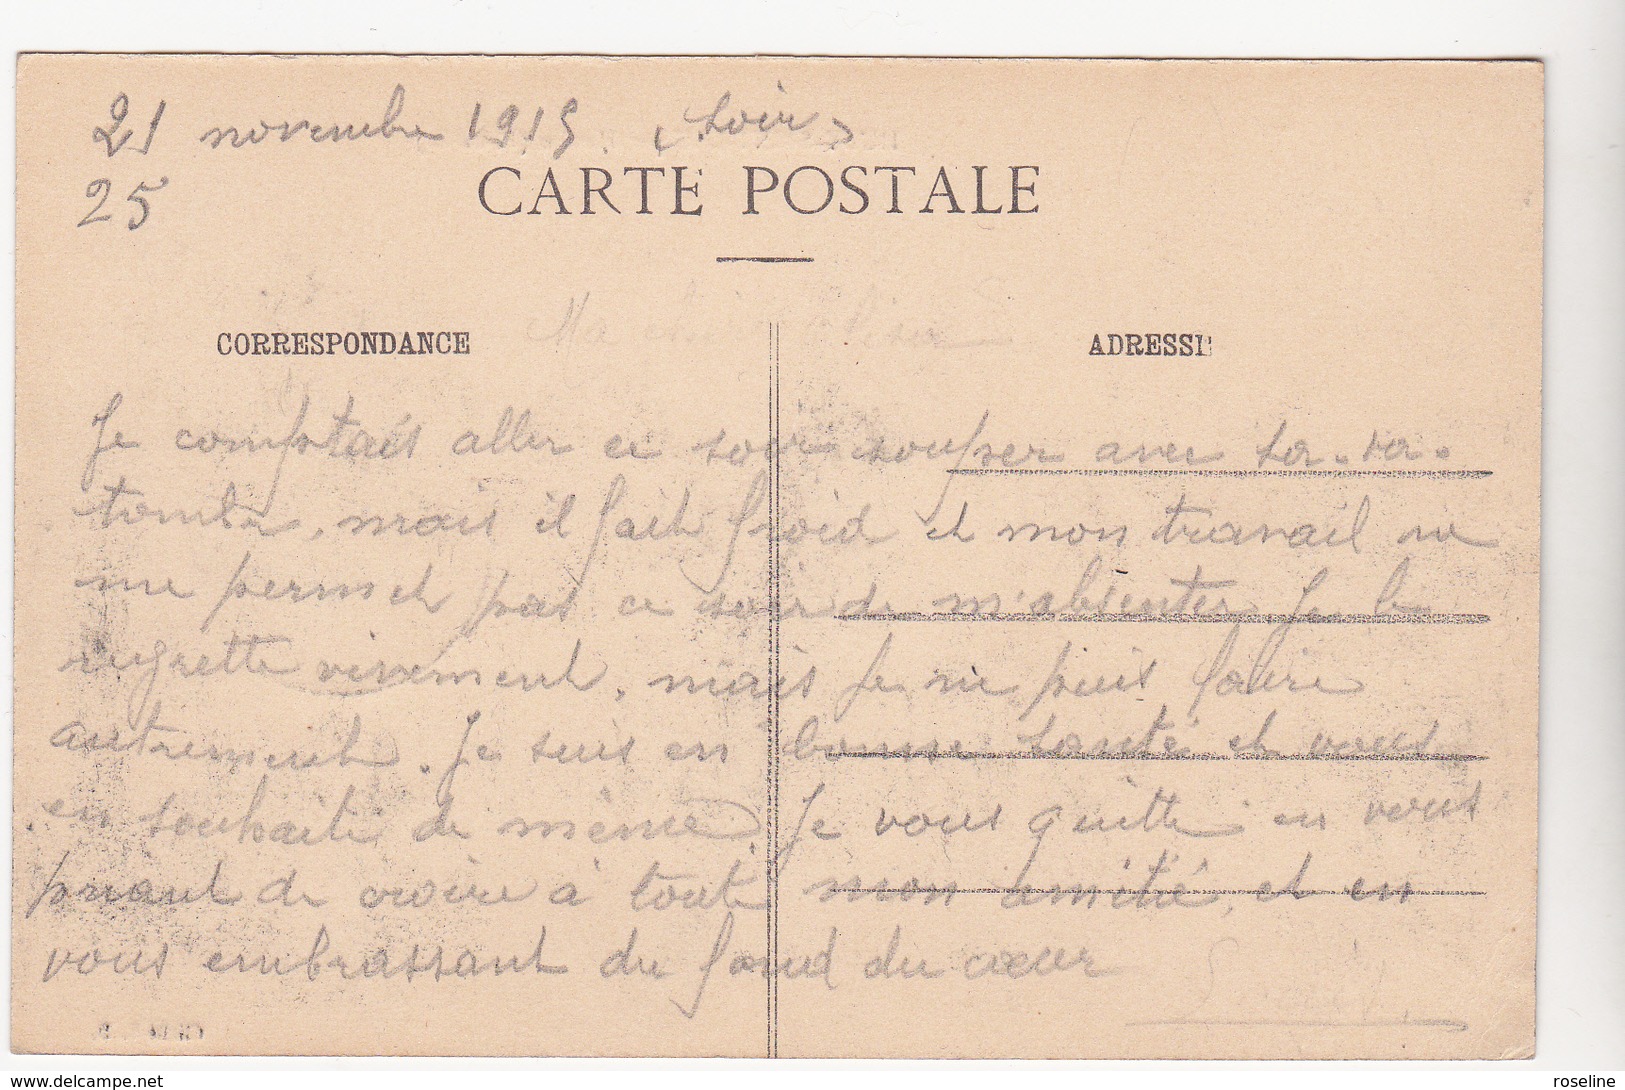 21 novembre 1915 (soir)
25
CARTE POSTALE
Ma
CORRESPONDANCE
ADRESSE
Je comptais aller ce soir souper avec
tombe, mais il fait froid et mon travail ne
me permet pas ce soir de m'absenter. Je le
regrette vivement, mais je ne puis faire
autrement. Je suis en bonne santé et vous
en souhaite de même. Je vous quitte en vous
priant de croire à toute mon amitié, et en
vous embrassant du fond du cœur
roseline